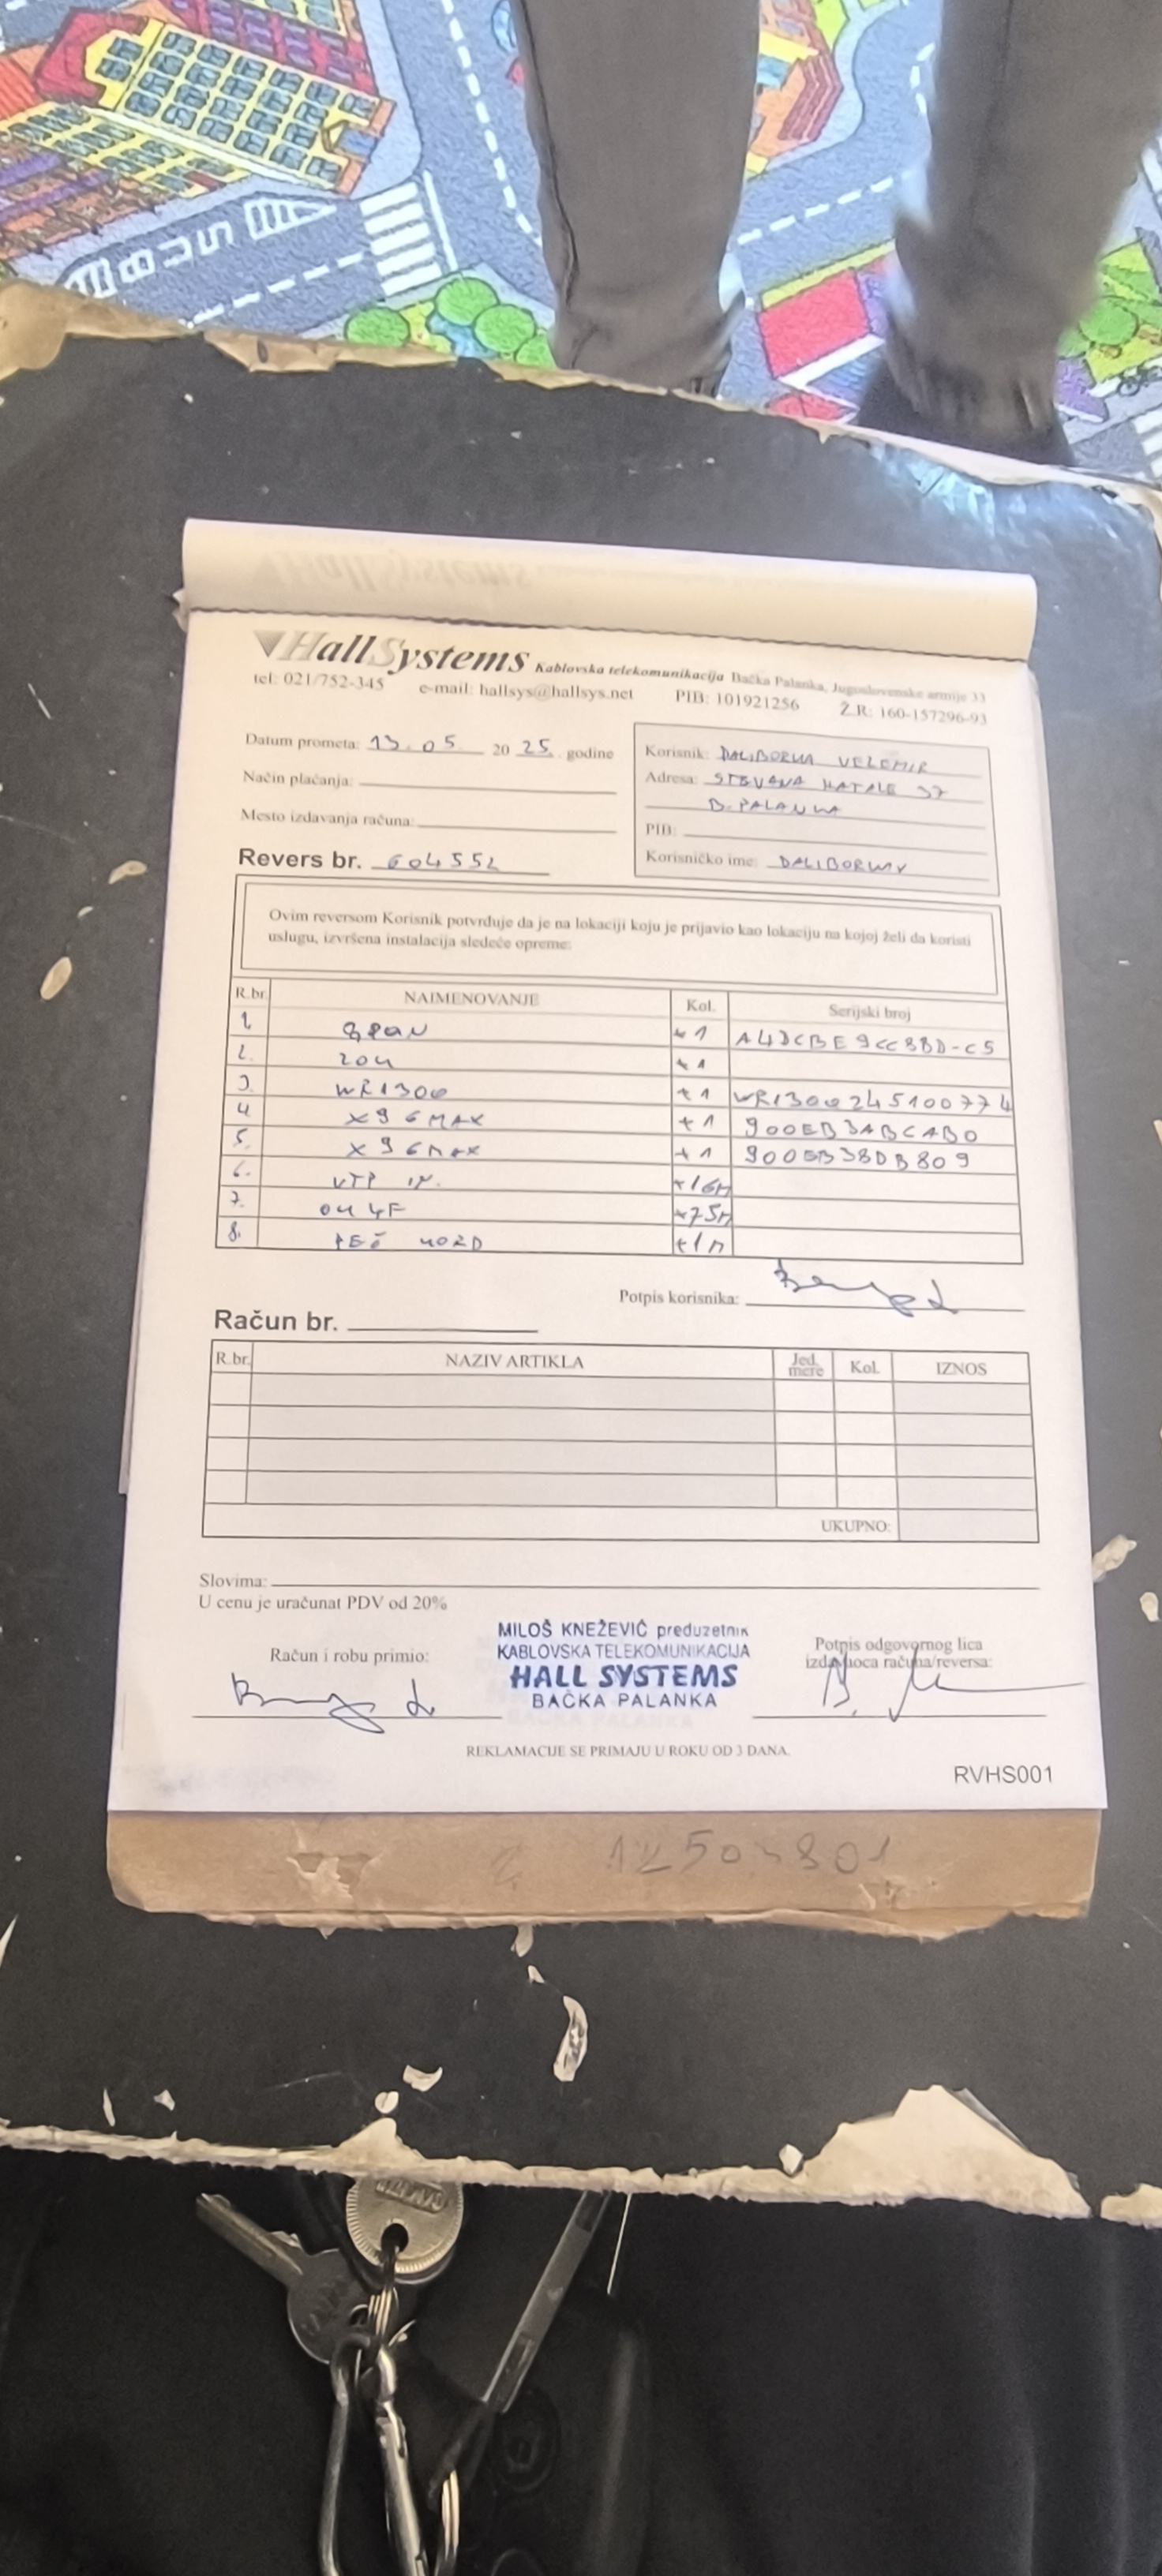 HallSystems Kablovska telekomunikacija Bačka Palanka, Jugoslovenske armije 33
tel: 021/752-345 e-mail: hallsys@hallsys.net PIB: 101921256 Ž.R: 160-157296-93
Datum prometa: 13.05. 2025. godine
Način plaćanja:
Mesto izdavanja računa:
Revers br. 604552
Korisnik: VELEMIR
Adresa: STEVANA 37
B. PALANKA
PIB:
Korisničko ime:
Ovim reversom Korisnik potvrđuje da je na lokaciji koju je prijavio kao lokaciju na kojoj želi da koristi
uslugu, izvršena instalacija sledeće opreme:
R.br. NAIMENOVANJE Kol. Serijski broj
1. +1
2. +1
3. WR1300 +1 WR1300245100774
4. X96MAX +1 900EB3ABCAB0
5. X96MAX +1 900EB38DB809
6. UTP
7. 4F
8.
Potpis korisnika:
Račun br.
R.br. NAZIV ARTIKLA Jed. mere Kol. IZNOS
UKUPNO:
Slovima:
U cenu je uračunat PDV od 20%
Račun i robu primio:
MILOŠ KNEŽEVIĆ preduzetnik
KABLOVSKA TELEKOMUNIKACIJA
HALL SYSTEMS
BAČKA PALANKA
Potpis odgovornog lica
izdavaoca računa/reversa:
REKLAMACIJE SE PRIMAJU U ROKU OD 3 DANA.
RVHS001